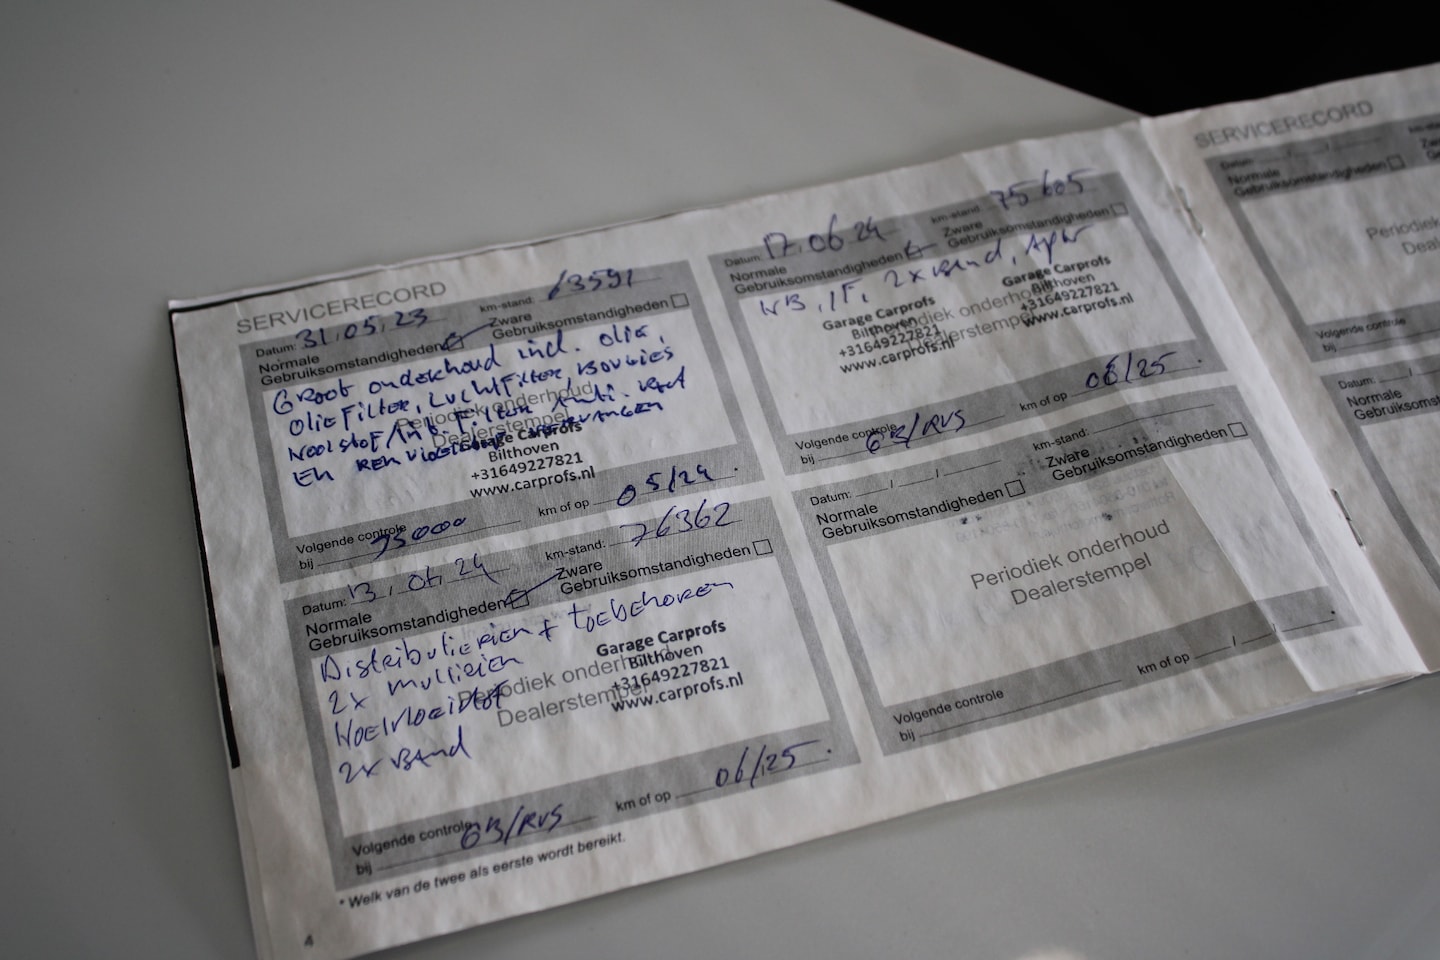 SERVICERECORD
Datum: 31.05.23 km-stand: 63591
Normale Gebruiksomstandigheden Zware Gebruiksomstandigheden
Groot onderhoud incl. olie,
oliefilter, luchtfilter, bougies
filter Anti.
En vervangen
Periodiek onderhoud
Dealerstempel
Garage Carprofs
Bilthoven
+31649227821
www.carprofs.nl
Volgende controle
bij 75000 km of op 05/24.
Datum: 13.06.24 km-stand: 76362
Normale Gebruiksomstandigheden Zware Gebruiksomstandigheden
Distributieriem + toebehoren
2x multiriem
Koelvloeistof
2x Band
Periodiek onderhoud
Dealerstempel
Garage Carprofs
Bilthoven
+31649227821
www.carprofs.nl
Volgende controle
bij GB/RVS km of op 06/25.
* Welk van de twee als eerste wordt bereikt.
4
Datum: 17.06.24 km-stand: 75605
Normale Gebruiksomstandigheden Zware Gebruiksomstandigheden
2x Band,
Periodiek onderhoud
Dealerstempel
Garage Carprofs
Bilthoven
+31649227821
www.carprofs.nl
Garage Carprofs
Bilthoven
+31649227821
www.carprofs.nl
Volgende controle
bij GB/RVS km of op 06/25
Datum: / / km-stand:
Normale Gebruiksomstandigheden Zware Gebruiksomstandigheden
Periodiek onderhoud
Dealerstempel
Volgende controle
bij km of op / /
SERVICERECORD
Datum: / /
Normale
Gebruiksomstandigheden
Periodiek
Volgende controle
bij
Datum:
Normale